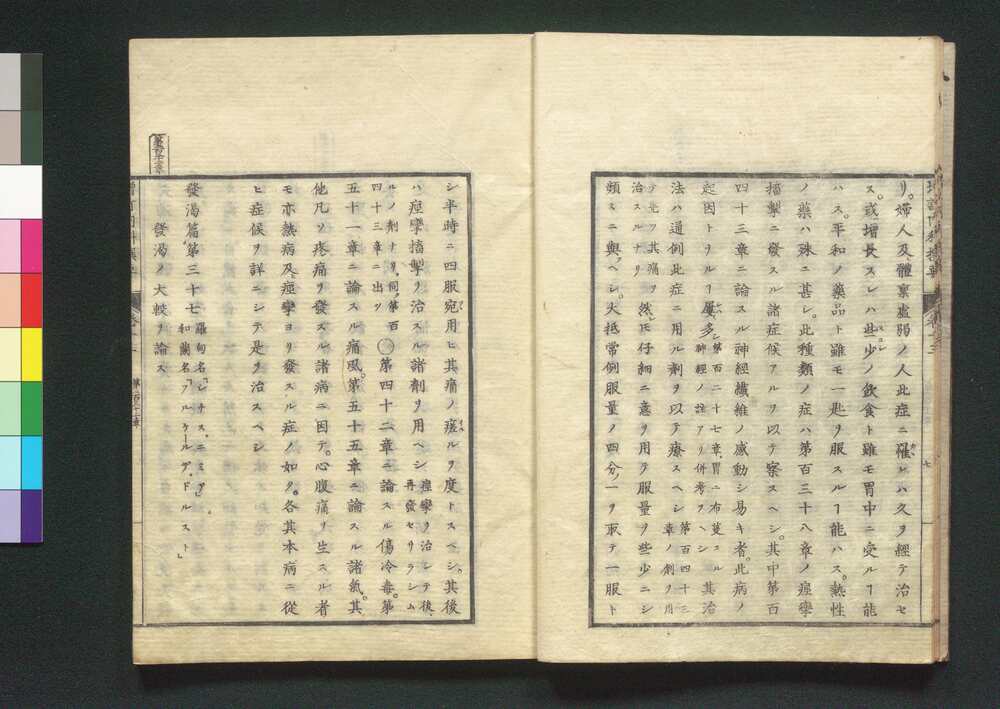 リ。婦人及體稟虚弱ノ人此症ニ罹レハ久ヲ經テ治セ
ス。或増長スレハ些少ノ飲食ト雖モ胃中ニ受ルヿ能
ハス。平和ノ藥品ト雖モ一匙ヲ服スルヿ能ハス。熱性
ノ藥ハ殊ニ甚レ。此種類ノ症ハ第百三十八章ノ痙攣
搐掣ニ發スル諸症候アルヲ以テ察スヘシ。其中第百
四十三章ニ論スル神經纖維ノ感動シ易キ者。此病ノ
起因トナルヿ屢多シ第百二十七章。胃ニ布蔓スル神經ノ註アリ併考フヘシ其治
法ハ通例此症ニ用ル劑ヲ以テ療スヘシ第百四十三章ノ劑ヲ用
テ先ツ其痛ヲ治スルナリ然𪜈仔細ニ意ヲ用ヲ服量ヲ些少ニシ
頻ニ與ヘシ。大抵常例服量ノ四分ノ一ヲ取テ一服ト
シ半時ニ四服宛用ヒ其痛ノ瘥ルヲ度トスベシ。其後
ハ痙攣搐掣ヲ治スル諸劑ヲ用ヘシ痙攣ヲ治シテ後。再發セサラシム
ルノ劑ナリ。同。第百四十三章ニ出ツ○第四十二章ニ論スル傷冷毒。第
五十一章ニ論スル痛風。第五十五章ニ論スル諸氣。其
他凡ソ疼痛ヲ發スル諸病ニ因テ。心腹痛ヲ生スル者
モ亦熱病及痙攣ヨリ發スル症ノ如ク。各其本病ニ從
ヒ症候ヲ詳ニシテ是ヲ治スベシ
發渇篇第三十七 羅甸名「シチス。ニミア」和蘭名「アルゲールデ。ドルスト」
發渇ノ大較ヲ論ス
七